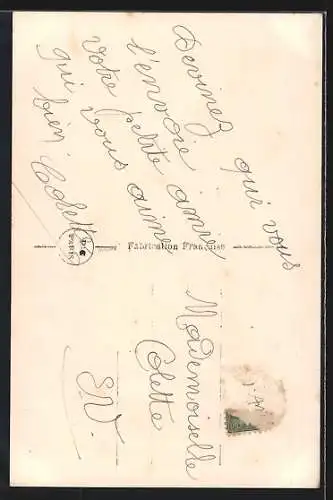 Devinez qui vous
l'envoie
votre petite amie
qui vous aime
bien. Colette
Fabrication Française
PARIS
Mademoiselle
Colette
E.V.